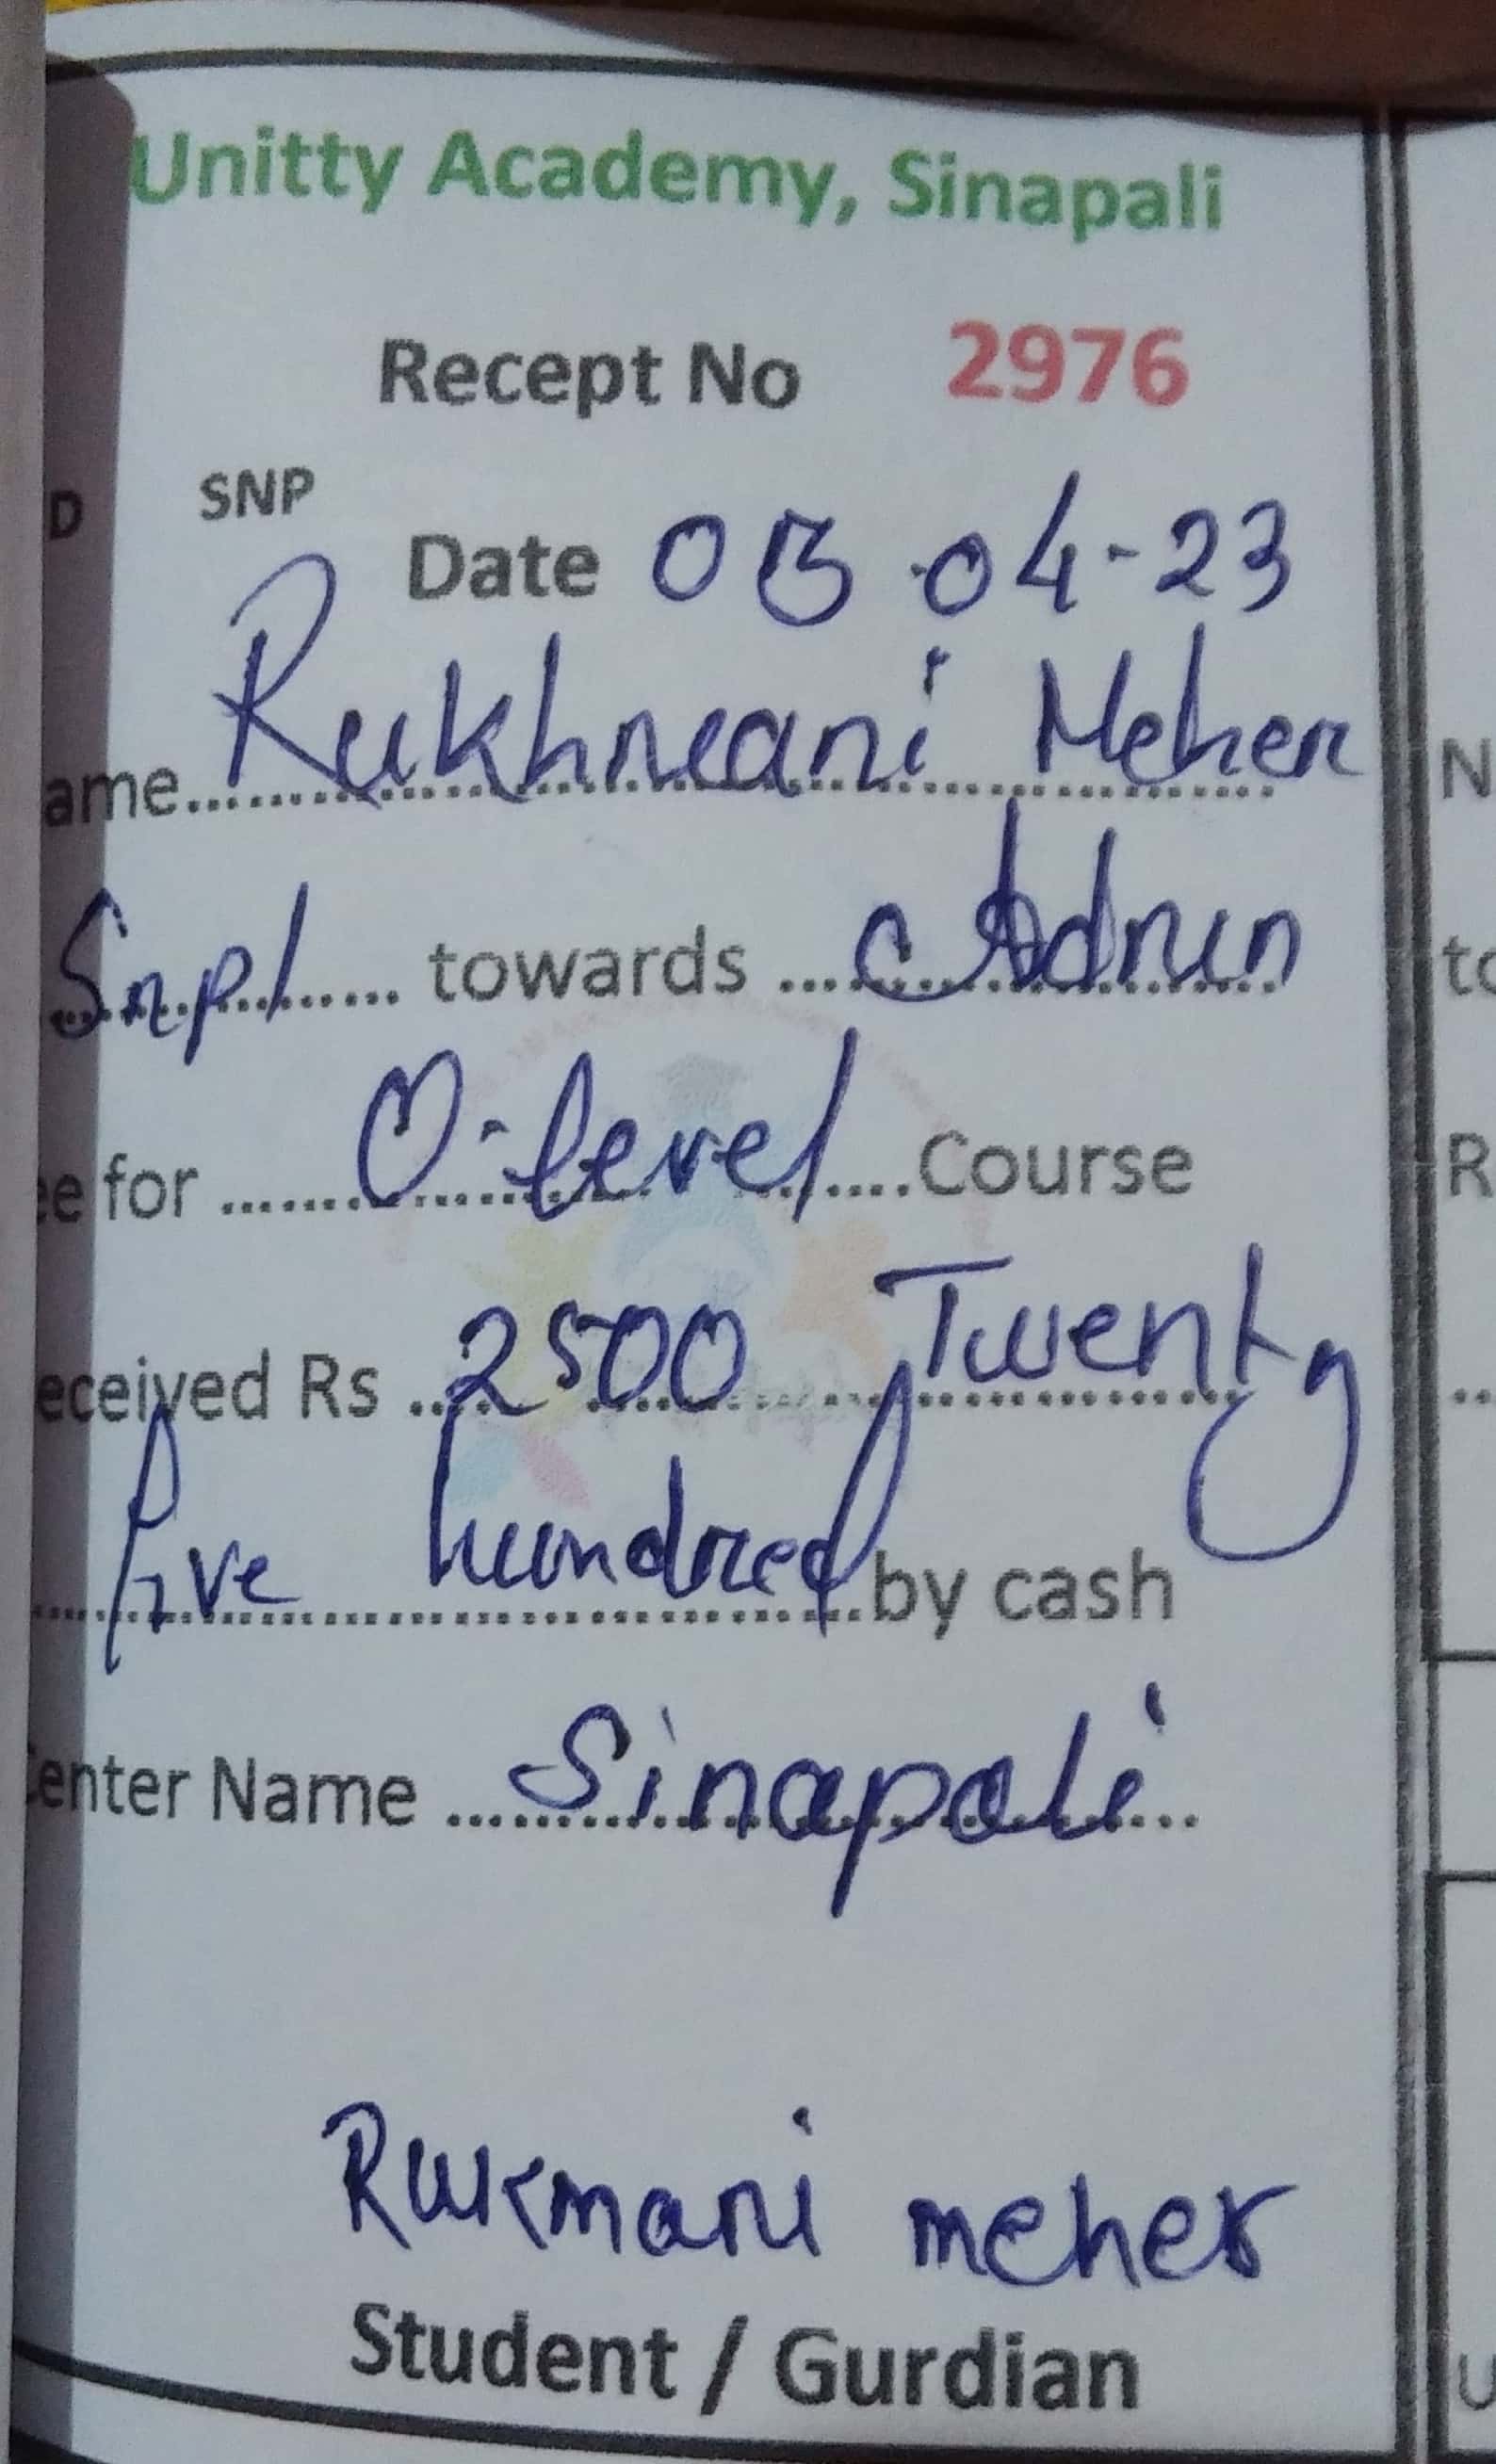 Unitty Academy, Sinapali
Recept No 2976
D SNP
Date 05-04-23
ame Rukhmani Meher
Snpl towards Admn
ee for O-level Course
eceived Rs 2500 Twenty
five hundred by cash
Center Name Sinapali
Rukmani meher
Student / Gurdian
N
to
R
U